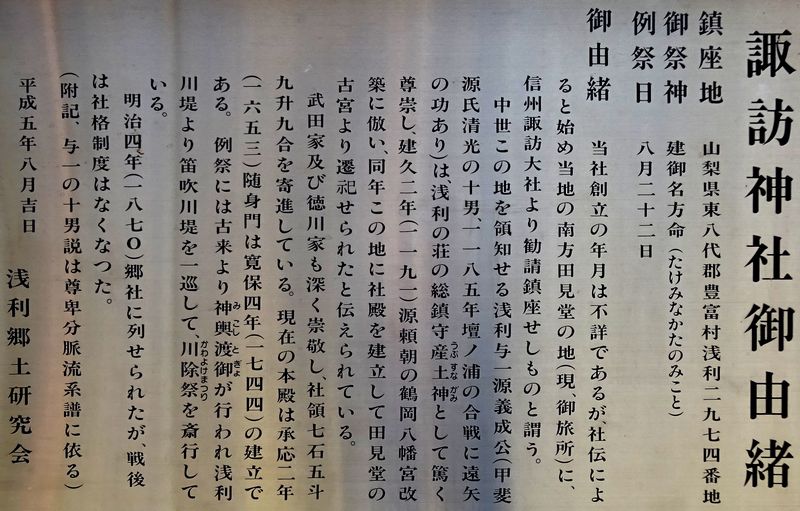 諏訪神社御由緒
鎮座地　山梨県東八代郡豊富村浅利二九七四番地
御祭神　建御名方命（たけみなかたのみこと）
例祭日　八月二十二日
御由緒　当社創立の年月は不詳であるが、社伝によ
ると始め当地の南方田見堂の地（現、御旅所）に、
信州諏訪大社より勧請鎮座せしものと謂う。
中世この地を領知せる浅利与一源義成公（甲斐
源氏清光の十男、一一八五年壇ノ浦の合戦に遠矢
の功あり）は、浅利の荘の総鎮守産土神（うぶすながみ）として篤く
尊崇し、建久二年（一一九一）源頼朝の鶴岡八幡宮改
築に倣い、同年この地に社殿を建立して田見堂の
古宮より遷祀せられたと伝えられている。
武田家及び徳川家も深く崇敬し、社領七石五斗
九升九合を寄進している。現在の本殿は承応二年
（一六五三）随身門は寛保四年（一七四四）の建立で
ある。　例祭には古来より神輿渡御（みこしとぎょ）が行われ浅利
川堤より笛吹川堤を一巡して、川除祭（かわよけまつり）を斎行して
いる。
明治四年（一八七〇）郷社に列せられたが、戦後
は社格制度はなくなつた。
（附記、与一の十男説は尊卑分脈流系譜に依る）
平成五年八月吉日　浅利郷土研究会